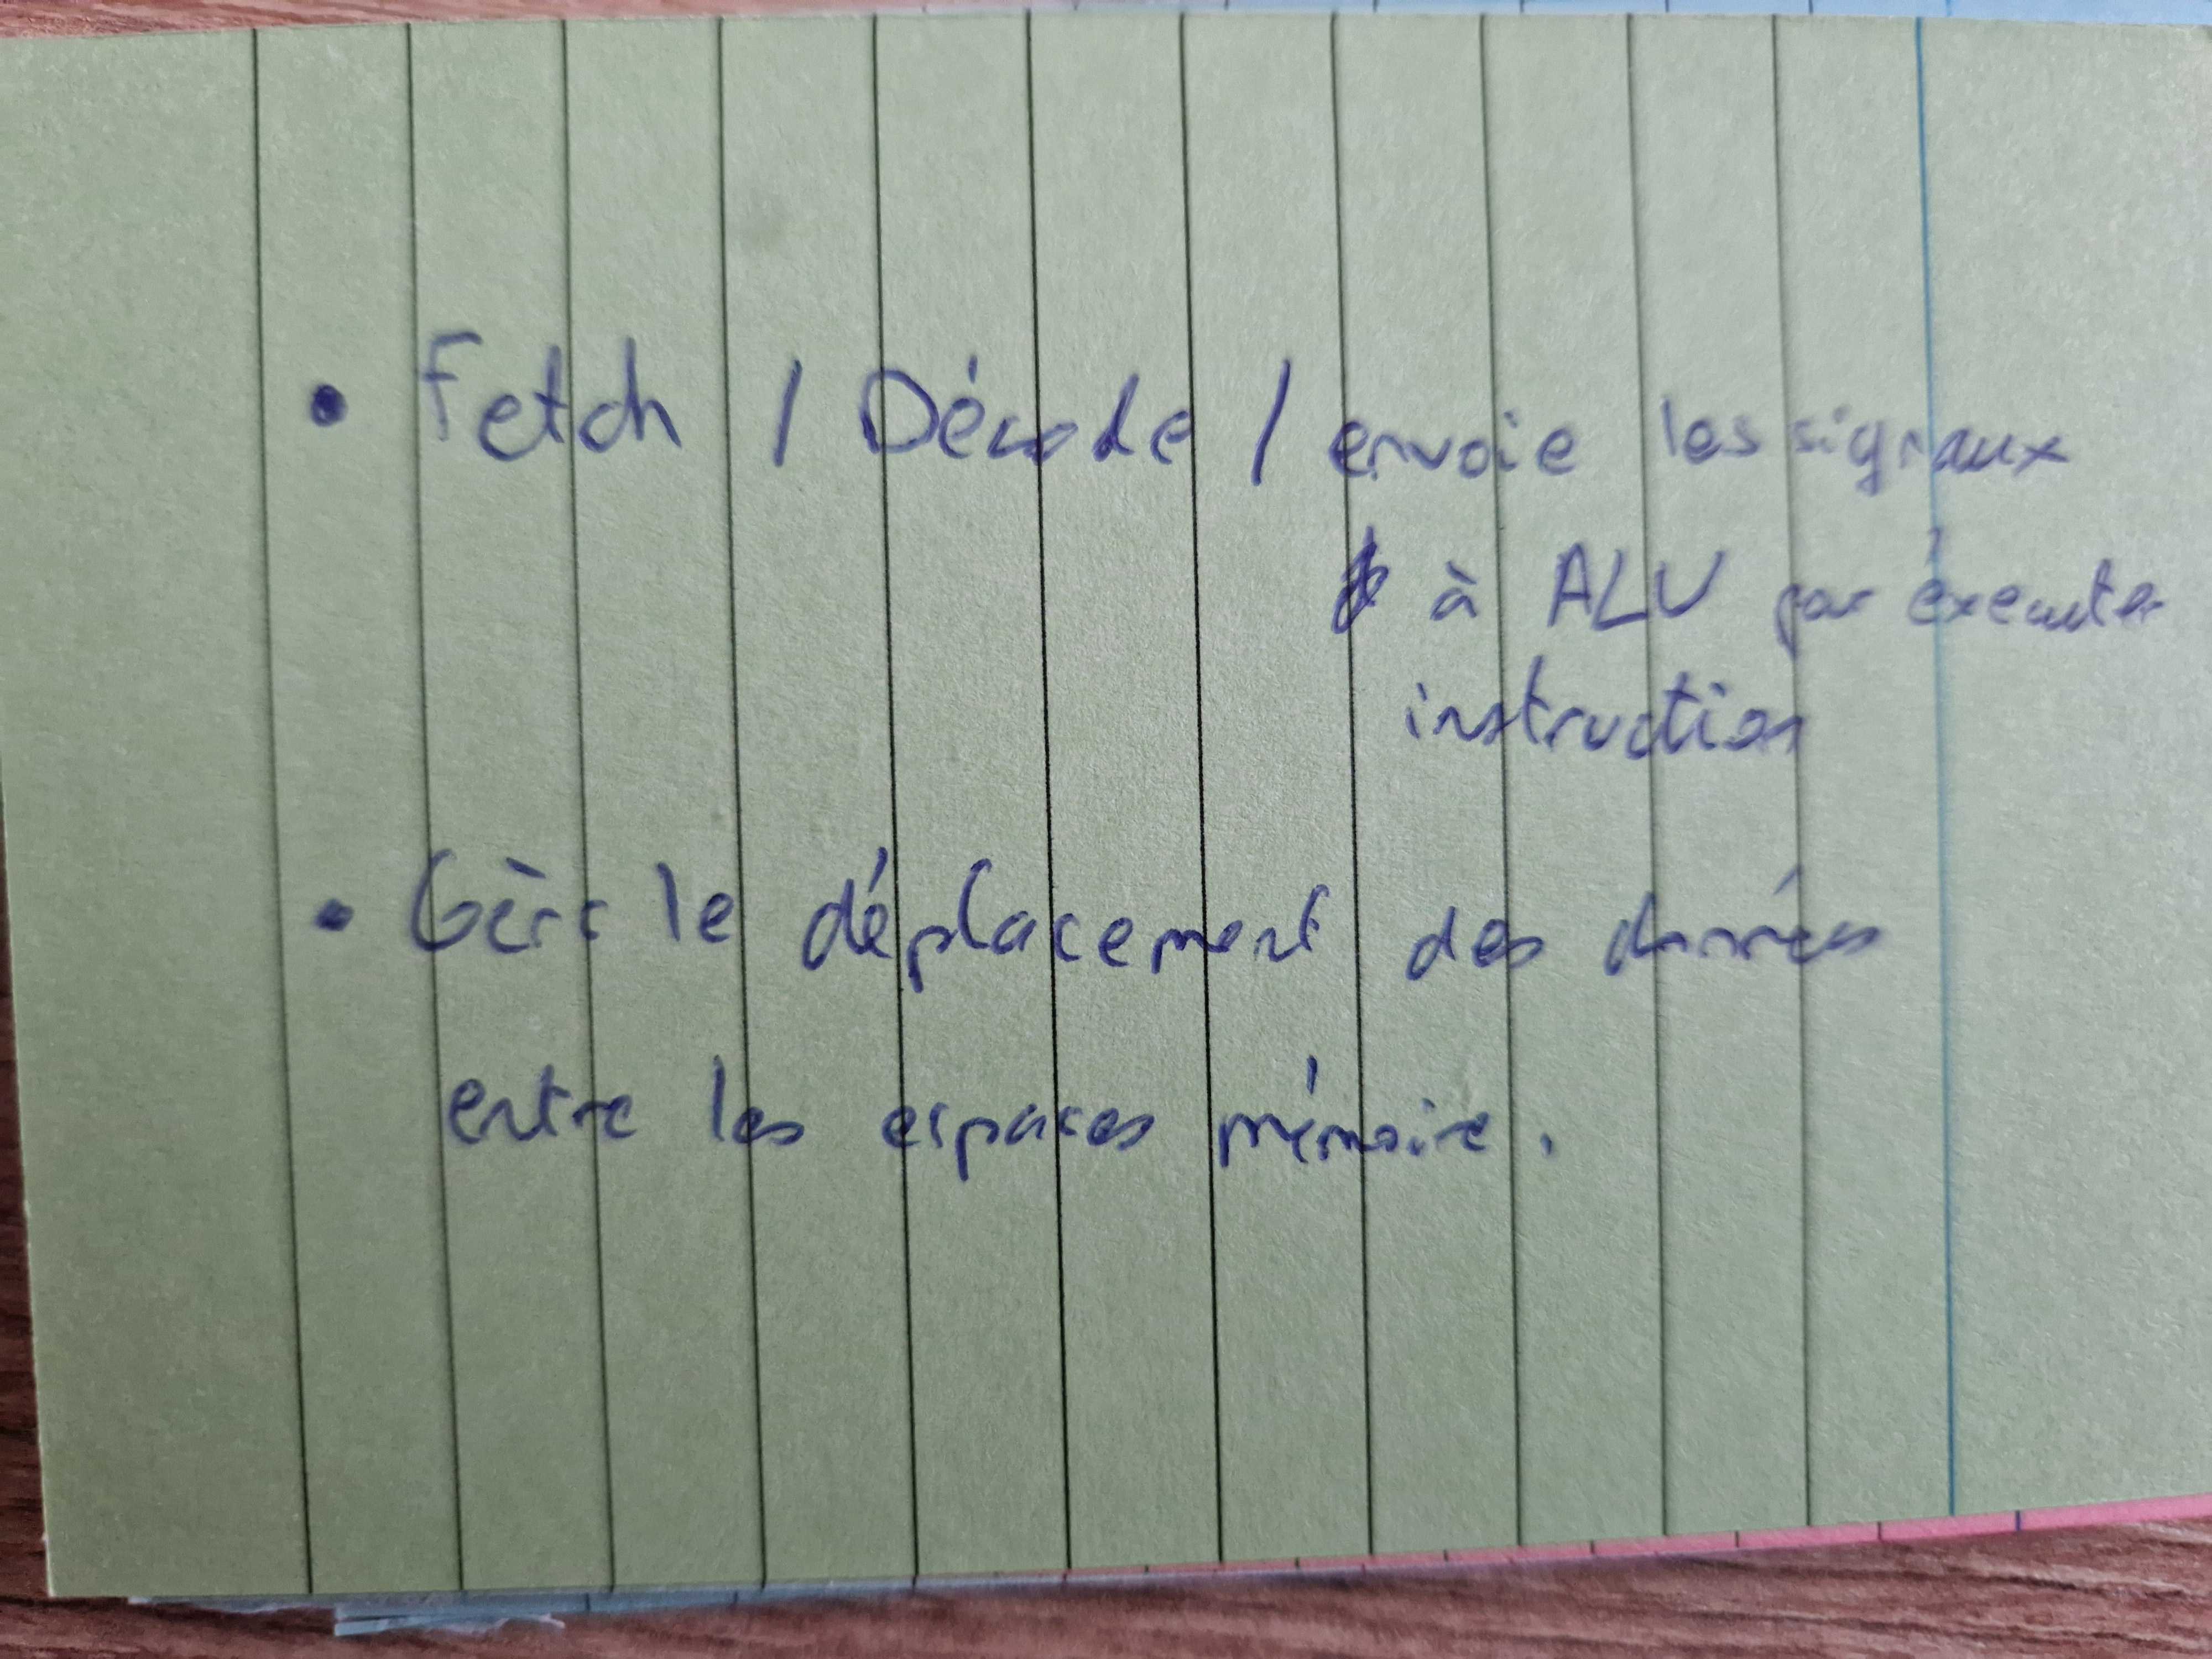 • Fetch / Décode / envoie les signaux
à ALU pour éxecuter
instruction
• Gère le déplacement des données
entre les espaces mémoire.